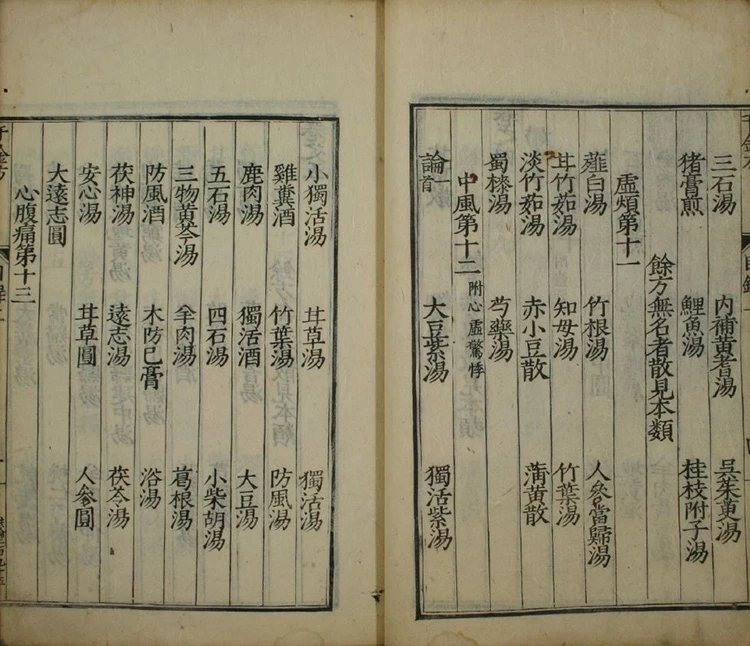 三石湯 內補黃耆湯 吳茱萸湯
猪膏煎 鯉魚湯 桂枝附子湯
餘方無名者散見本類
虛煩第十一
薤白湯 竹根湯 人參當歸湯
甘竹茹湯 知母湯 竹葉湯
淡竹茹湯 赤小豆散 蒲黃散
蜀漆湯 芍藥湯
中風第十二 附心虛驚悸
論一首 大豆紫湯 獨活紫湯
小獨活湯 甘草湯 獨活湯
雞糞酒 竹葉湯 防風湯
鹿肉湯 獨活酒 大豆湯
五石湯 四石湯 小柴胡湯
三物黃芩湯 羊肉湯 葛根湯
防風酒 木防已膏 浴湯
茯神湯 遠志湯 茯苓湯
安心湯 甘草圓 人參圓
大遠志圓
心腹痛第十三